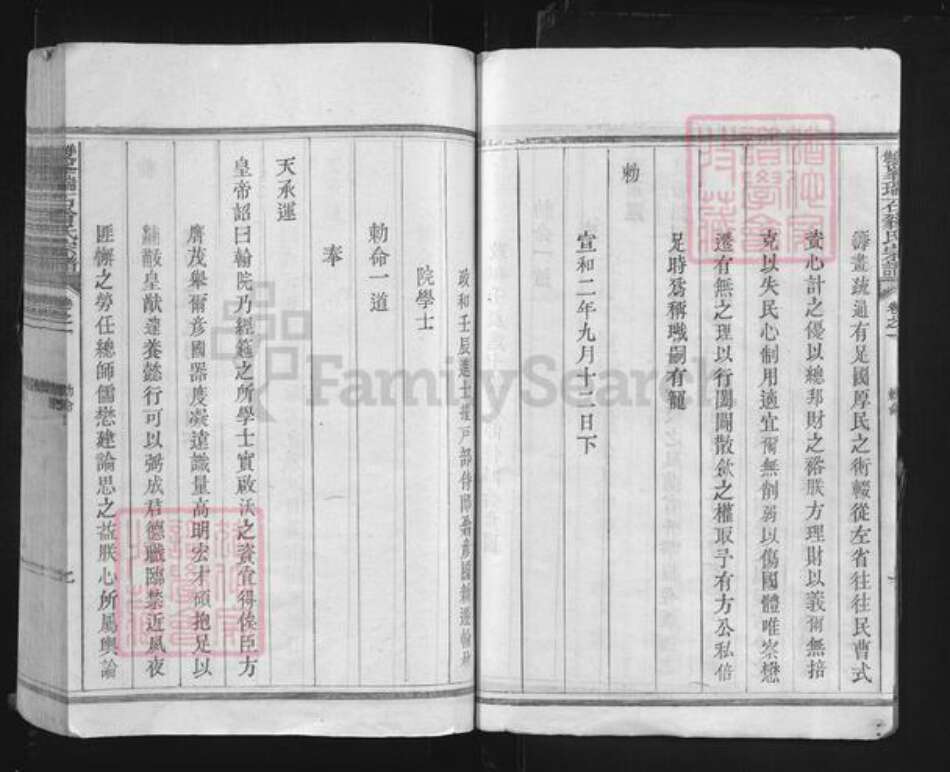 籌畫疏通有足國厚民之術輟從左省往往民曹式
資心計之優以總邦財之裕朕方理財以義爾無掊
克以失民心制用適宜爾無削弱以傷國體唯察懋
遷有無之理以行闔闢散斂之權取予有方公私倍
足時爲稱職嗣有寵
勅
宣和二年九月十二日下
政和壬辰進士擢戶部侍郎 彥國
院學士
勅命一道
奉
天承運
皇帝詔曰翰院乃經筵之所學士實啟沃之資宜得俟臣方
膺茂舉爾彥國器度凝遠識量高明宏才碩抱足以
黼黻皇猷達養懿行可以弼成君德職臨禁近夙夜
匪懈之勞任總師儒懋建論思之益朕心所屬輿論
卷之一
勅命
FamilySearch